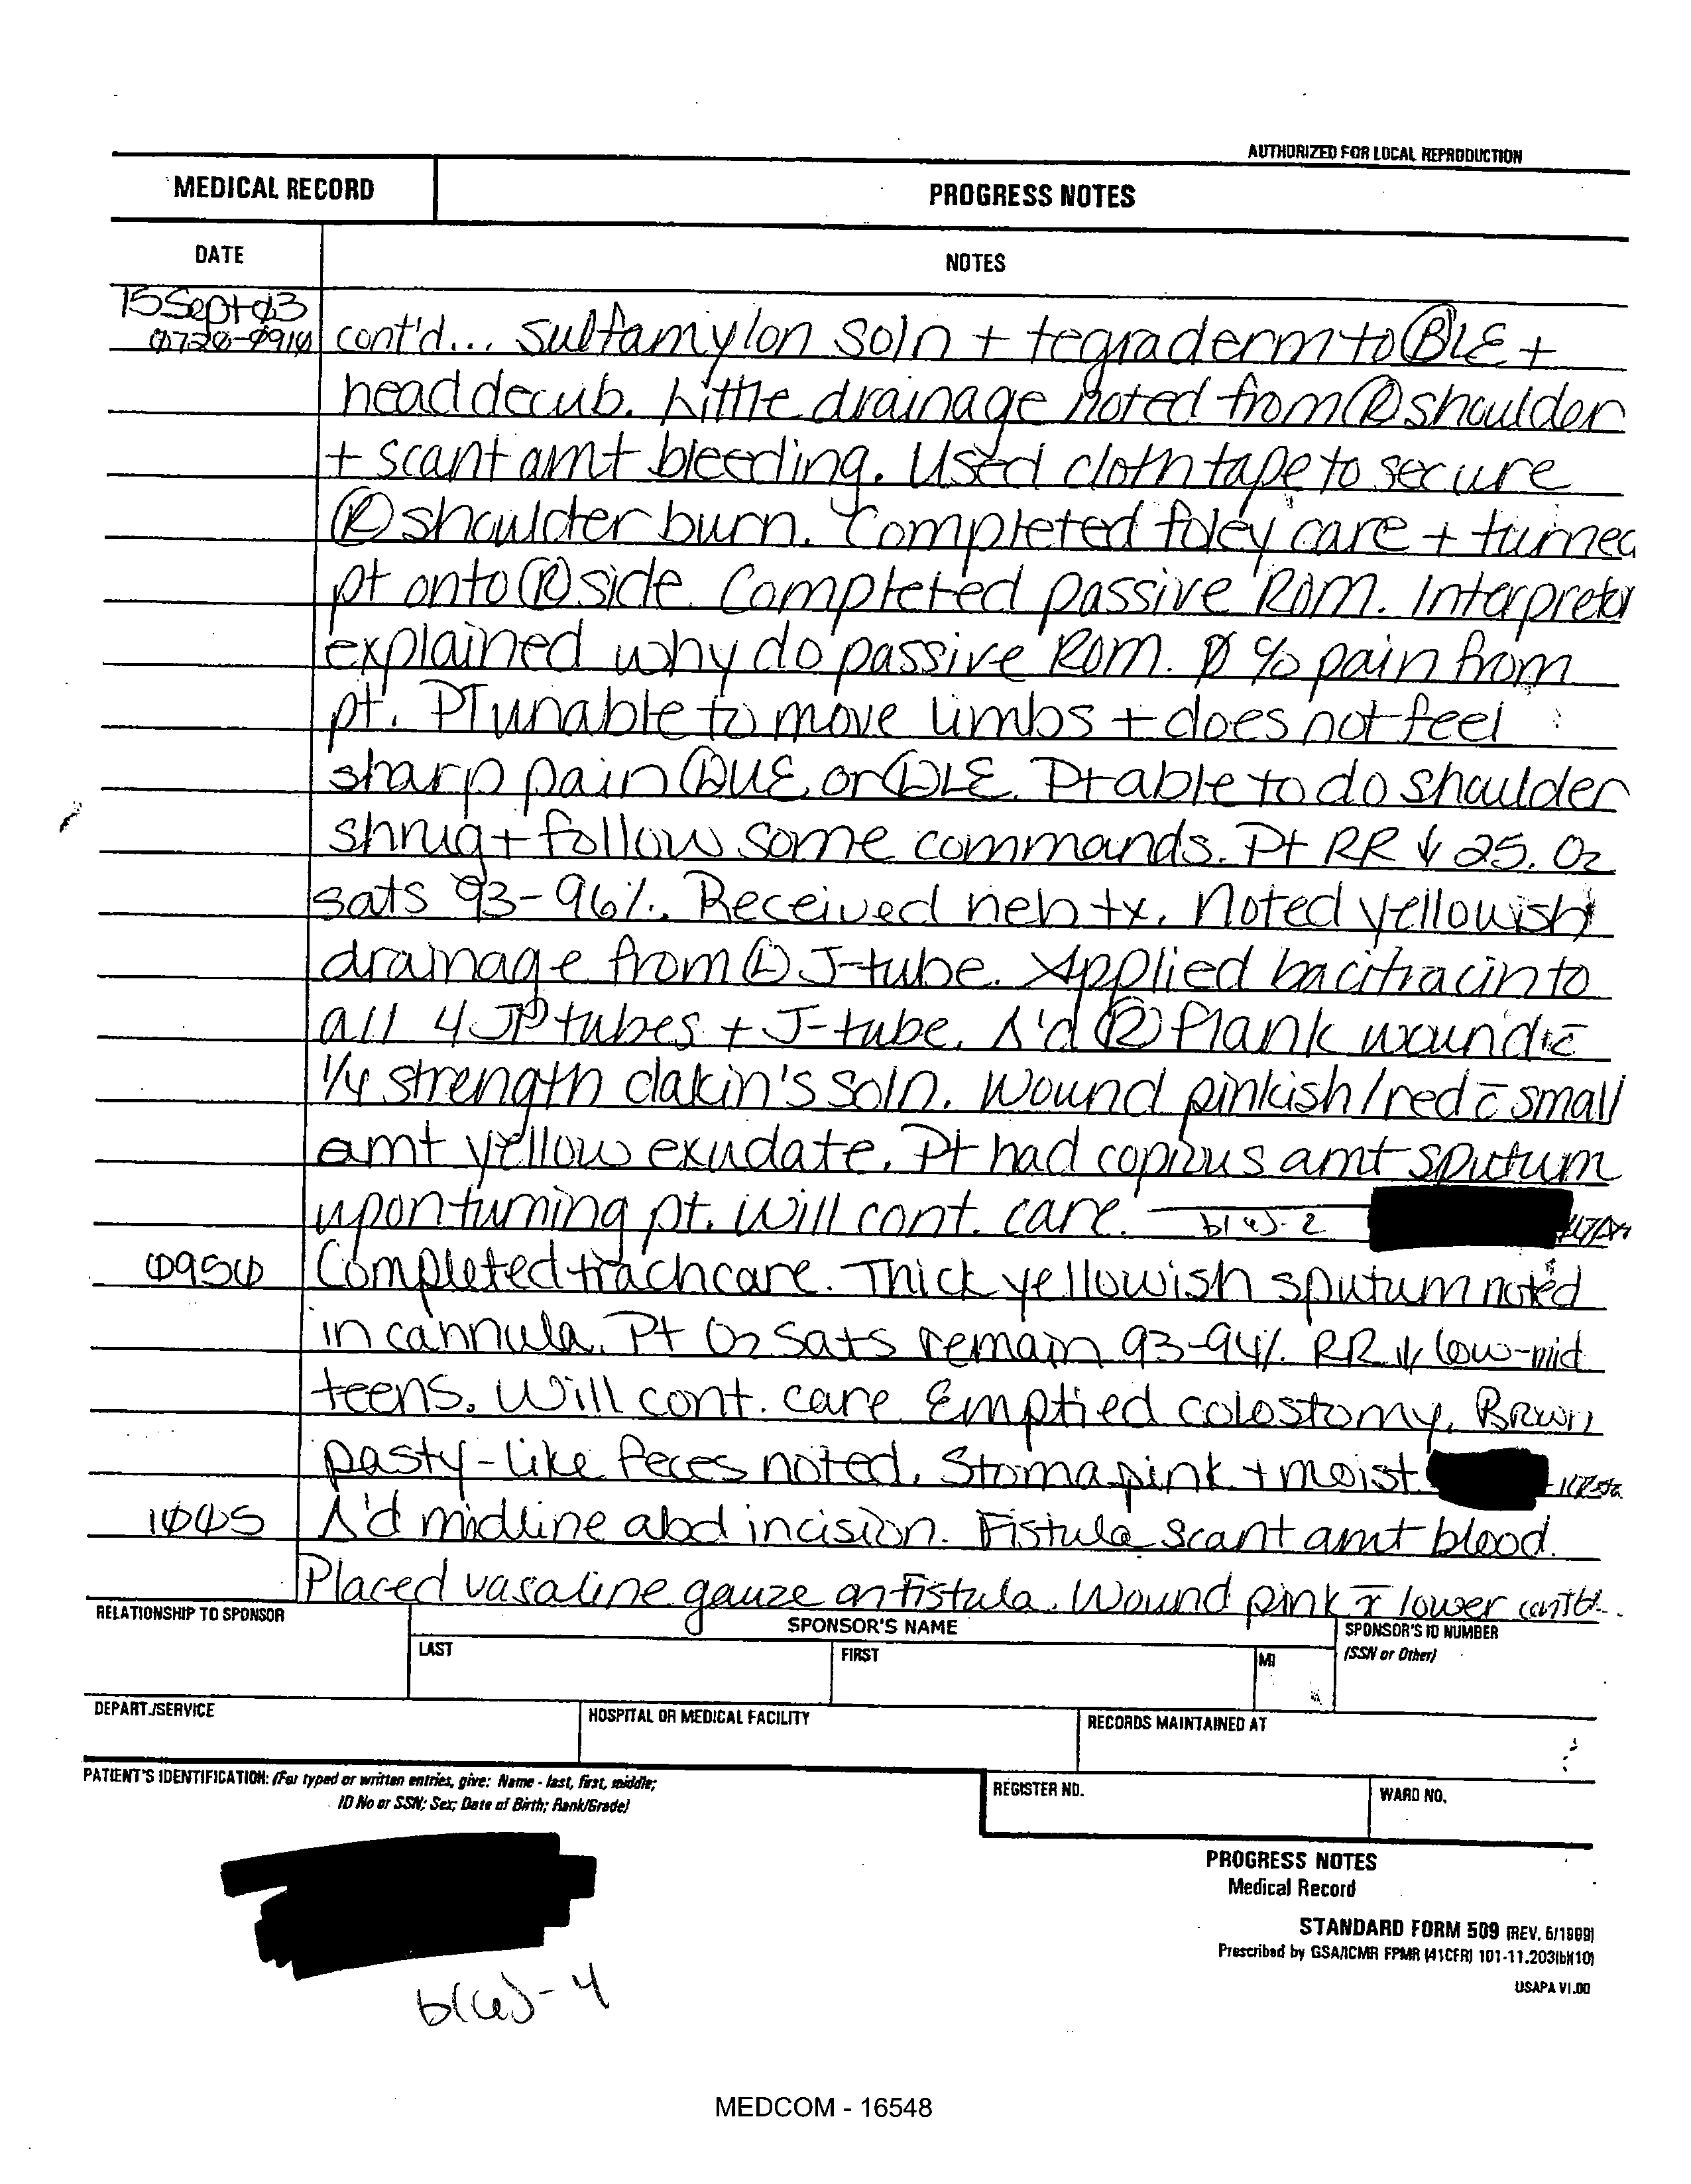 AUTHORIZED FOR LOCAL REPRODUCTION
MEDICAL RECORD
PROGRESS NOTES
DATE
NOTES
15 Sept 03
0720-0910 cont'd... Sulfamylon soln + tegraderm to Ⓑ LE +
head decub. Little drainage noted from Ⓡ shoulder
+ scant amt bleeding. Used cloth tape to secure
Ⓡ shoulder burn. Completed foley care + turned
pt onto Ⓡ side. Completed passive ROM. Interpretor
explained why do passive ROM. Ø % pain from
pt. PT unable to move limbs + does not feel
sharp pain UE or LE. Pt able to do shoulder
shrug + follow some commands. Pt RR ↓ 25. O2
sats 93-96%. Received neb tx. Noted yellowish
drainage from Ⓛ J-tube. Applied bacitracin to
all 4 JP tubes + J-tube. Δ'd Ⓡ flank wound c̄
1/4 strength dakin's soln. Wound pinkish/red c̄ small
amt yellow exudate. Pt had copious amt sputum
upon turning pt. Will cont. care. b(6)-2
0950 Completed trach care. Thick yellowish sputum noted
in cannula. Pt O2 sats remain 93-94%. RR ↓ low-mid
teens. Will cont. care. Emptied colostomy. Brown
pasty-like feces noted. Stoma pink + moist.
1045 Δ'd midline abd incision. Fistula scant amt blood.
Placed vasaline gauze on fistula. Wound pink lower
RELATIONSHIP TO SPONSOR
SPONSOR'S NAME
SPONSOR'S ID NUMBER
(SSN or Other)
LAST
FIRST
MI
DEPART./SERVICE
HOSPITAL OR MEDICAL FACILITY
RECORDS MAINTAINED AT
PATIENT'S IDENTIFICATION: (For typed or written entries, give: Name - last, first, middle;
ID No or SSN; Sex; Date of Birth; Rank/Grade)
REGISTER NO.
WARD NO.
PROGRESS NOTES
Medical Record
STANDARD FORM 509 (REV. 5/1999)
Prescribed by GSA/ICMR FPMR (41CFR) 101-11.203(b)(10)
USAPA V1.00
b(6)-4
MEDCOM - 16548